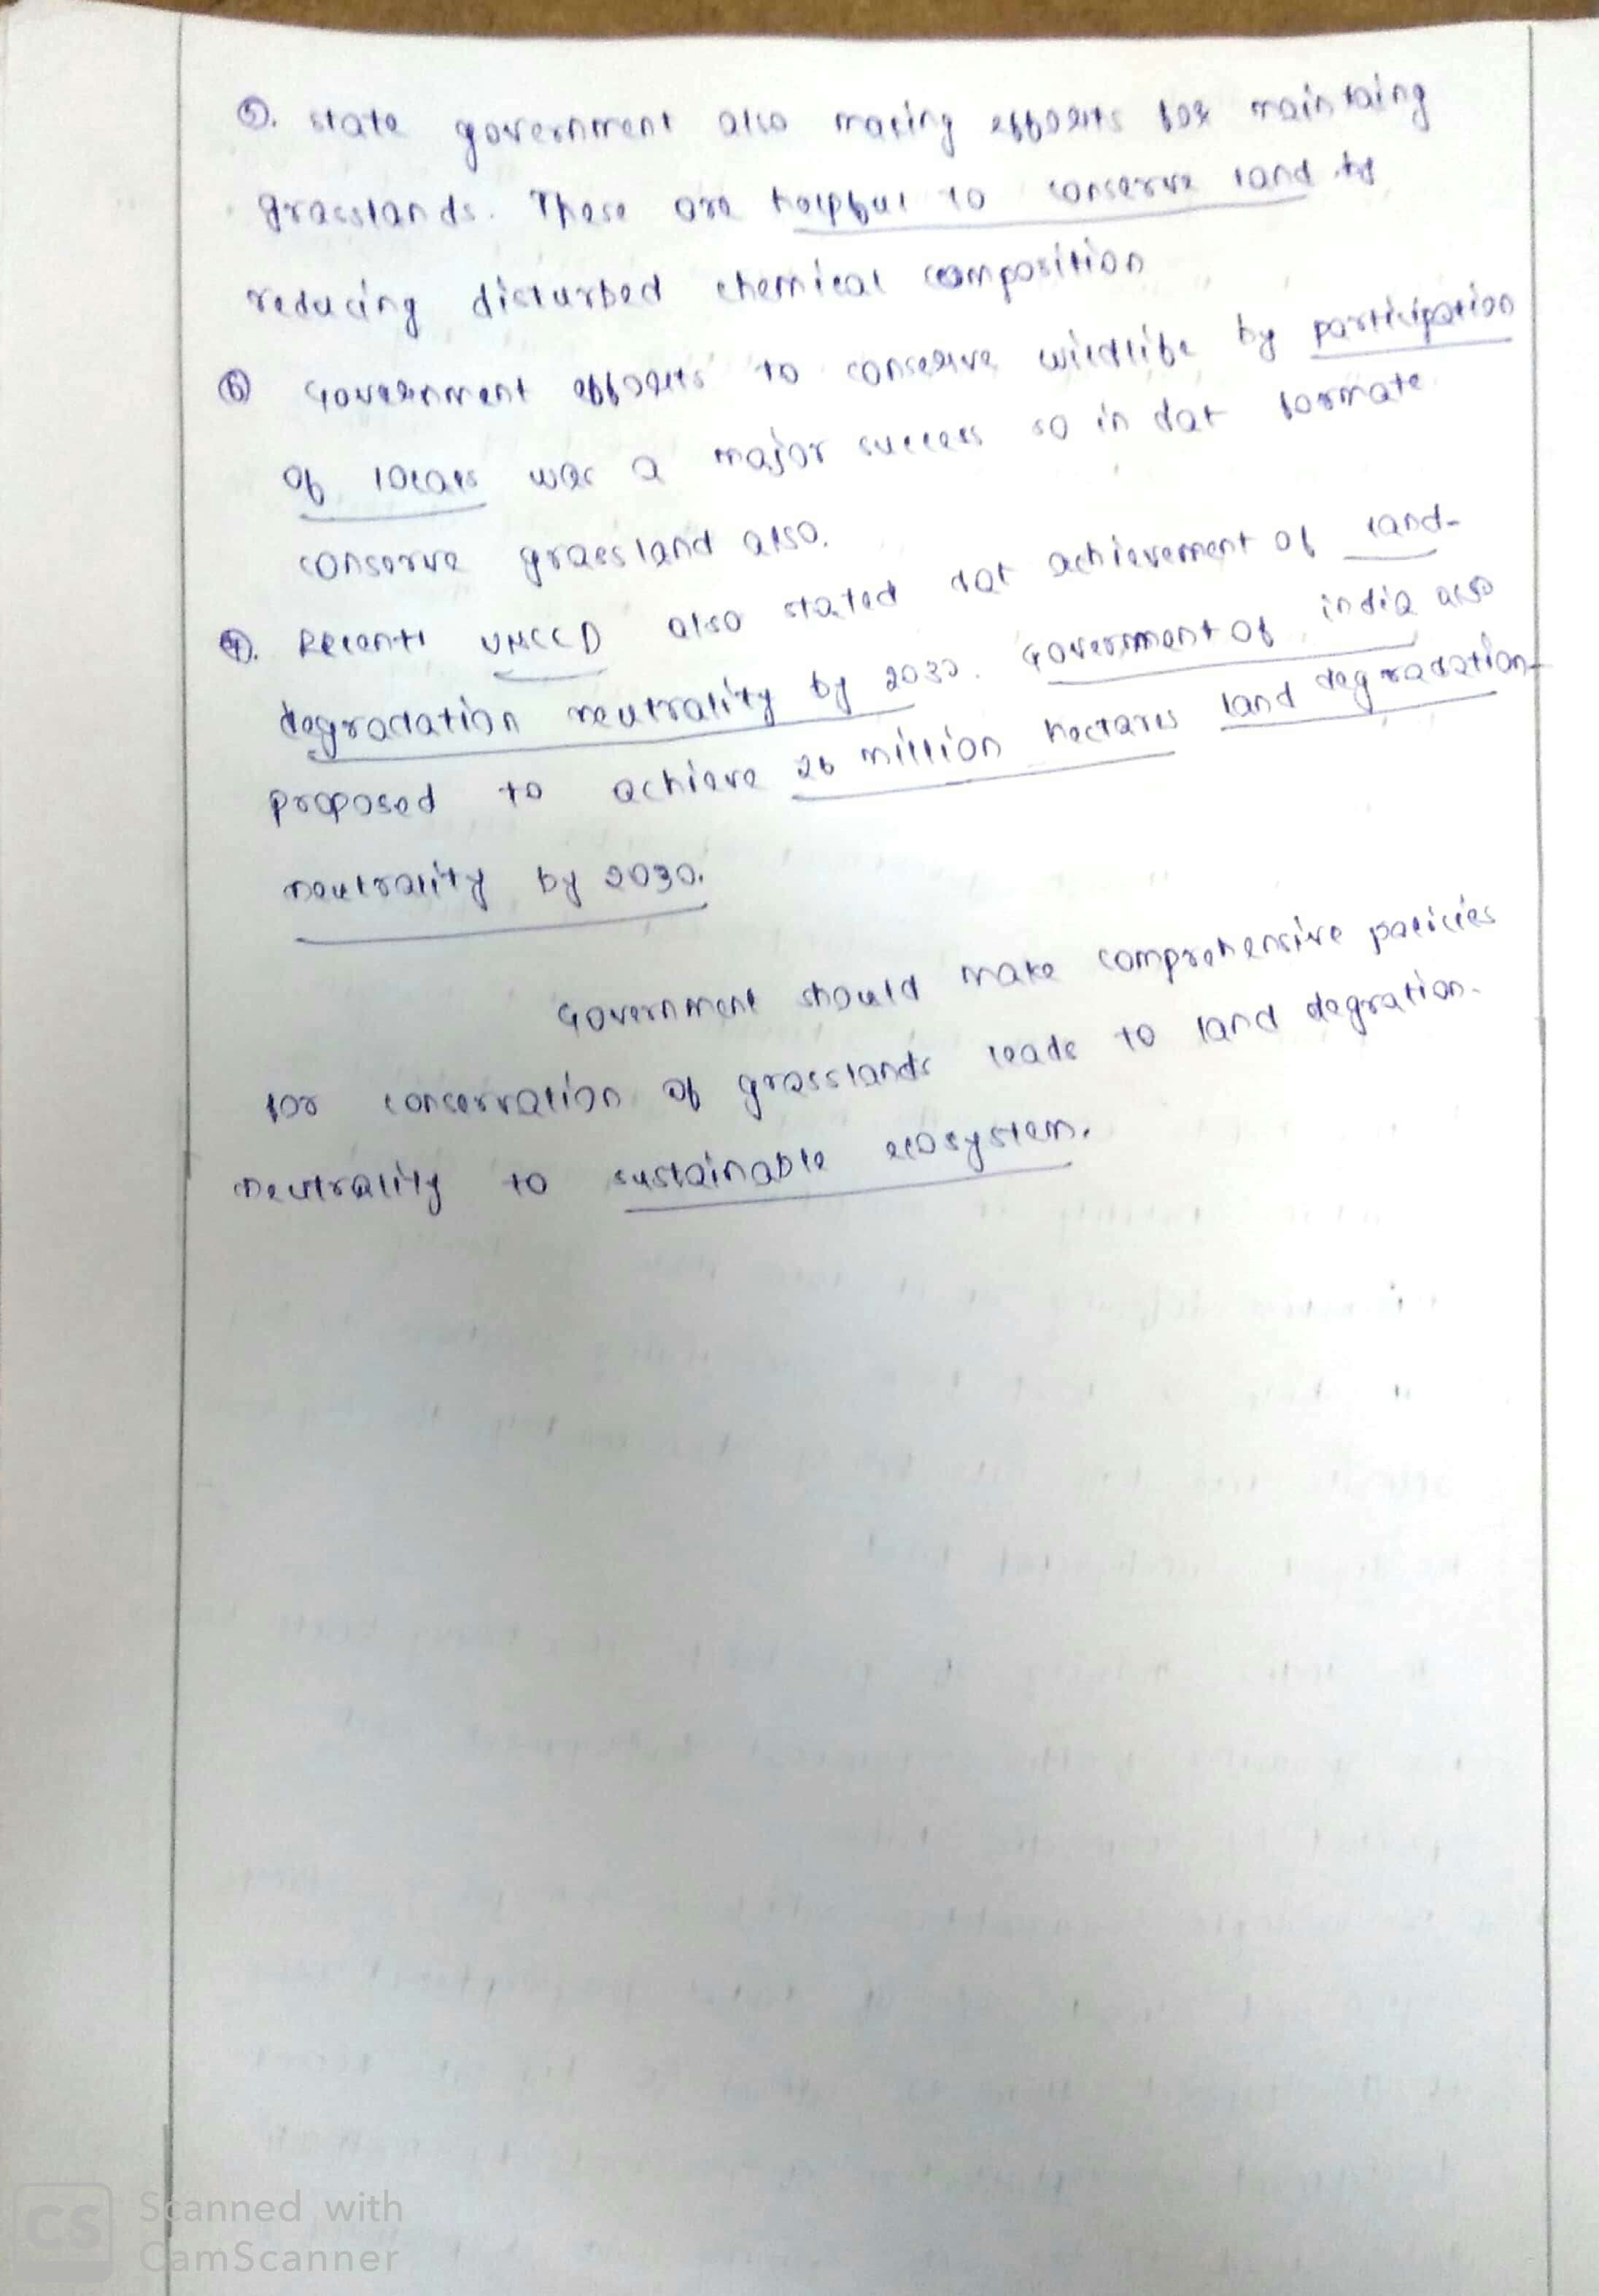 ⑤. state government also making efforts for maintaing
grasslands. These are helpful to conserve land by
reducing disturbed chemical composition
⑥ Government efforts to conserve wildlife by participation
of locals was a major success so in dat formate
conserve grassland also.
⑦. Recent UNCCD also stated dat achievement of land-
degradation neutrality by 2030. Government of india also
proposed to achieve 26 million hectares land degradation
neutrality by 2030.
Government should make comprehensive policies
for conservation of grasslands leads to land degration
neutrality to sustainable ecosystem.
CS Scanned with
CamScanner